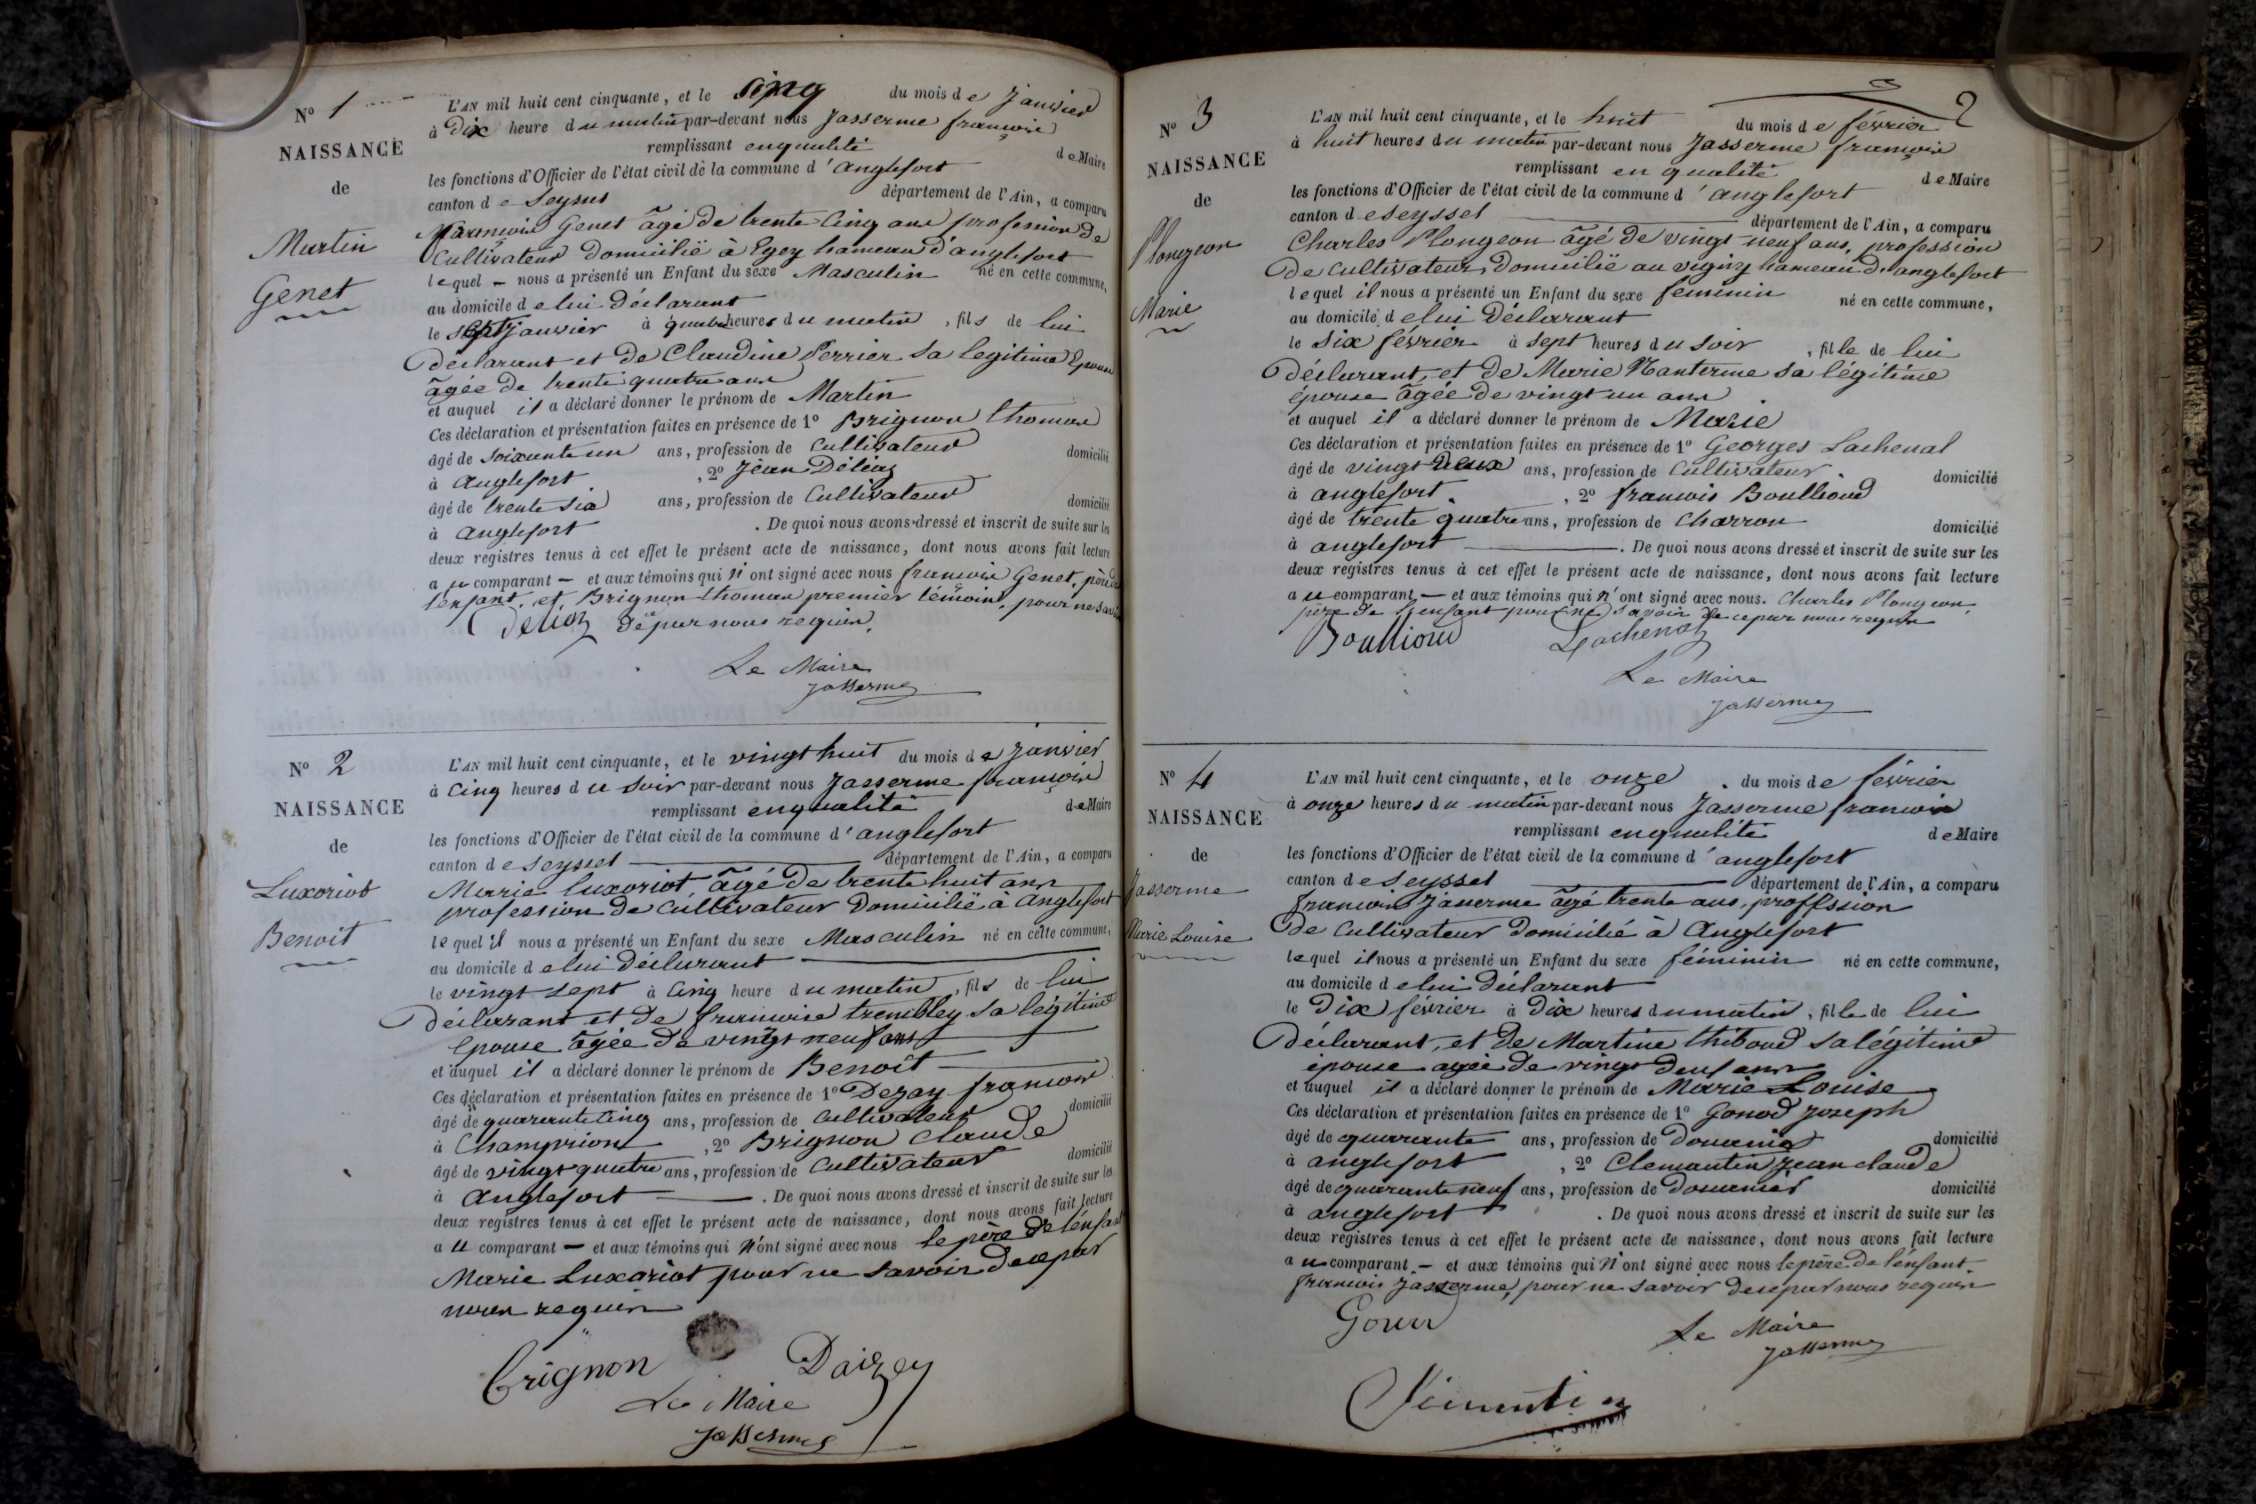 Nº 1
NAISSANCE
de
Martin
Genet
L'AN mil huit cent cinquante, et le cinq du mois de janvier
à dix heure du matin par-devant nous Jasserme françois
remplissant en qualité de Maire
les fonctions d'Officier de l'état civil de la commune d'anglefort
canton de Seyssel département de l'Ain, a comparu
françois Genet âgé de trente cinq ans profession de
Cultivateur Domicilié à hameau d'anglefort
lequel – nous a présenté un Enfant du sexe Masculin né en cette commune,
au domicile de lui déclarant
le janvier à quatre heures du matin, fils de lui
déclarant et de Claudine Perrier sa legitime Epouse
âgée de trente quatre ans
et auquel il a déclaré donner le prénom de Martin
Ces déclaration et présentation faites en présence de 1º Brignon thomas
âgé de soixante un ans, profession de Cultivateur domicilié
à Anglefort, 2º Jean Déliaz
âgé de trente six ans, profession de Cultivateur domicilié
à Anglefort. De quoi nous avons dressé et inscrit de suite sur les
deux registres tenus à cet effet le présent acte de naissance, dont nous avons fait lecture
au comparant – et aux témoins qui n'ont signé avec nous françois Genet, père de
l'enfant, et, Brignon thomas premier témoin, pour ne savoir
Deliaz de par nous requis.
Le Maire
Jasserme
Nº 2
NAISSANCE
de
Luxoriot
Benoit
L'AN mil huit cent cinquante, et le vingt huit du mois de janvier
à cinq heures du soir par-devant nous Jasserme françois
remplissant en qualité de Maire
les fonctions d'Officier de l'état civil de la commune d'anglefort
canton de Seyssel département de l'Ain, a comparu
Marie Luxoriot âgé de trente huit ans
profession de Cultivateur Domicilié à Anglefort
lequel il nous a présenté un Enfant du sexe Masculin né en cette commune,
au domicile de lui déclarant
le vingt sept à Cinq heure du matin, fils de lui
déclarant et de françoise trembley sa légitime
Epouse âgée de vingt neuf ans
et auquel il a déclaré donner le prénom de Benoit
Ces déclaration et présentation faites en présence de 1º Dezay françois
âgé de quarante cinq ans, profession de Cultivateur domicilié
à Champrion, 2º Brignon Claude
âgé de vingt quatre ans, profession de Cultivateur domicilié
à Anglefort. De quoi nous avons dressé et inscrit de suite sur les
deux registres tenus à cet effet le présent acte de naissance, dont nous avons fait lecture
au comparant – et aux témoins qui n'ont signé avec nous le père de l'enfant
Marie Luxoriot pour ne savoir de ce par
nous requis
Brignon Daizey
Le Maire
Jasserme
2
Nº 3
NAISSANCE
de
Plongeon
Marie
L'AN mil huit cent cinquante, et le huit du mois de février
à huit heures du matin par-devant nous Jasserme françois
remplissant en qualité de Maire
les fonctions d'Officier de l'état civil de la commune d'anglefort
canton de seyssel département de l'Ain, a comparu
Charles Plongeon âgé de vingt neuf ans, profession
De cultivateur, Domicilié au hameau d'anglefort
lequel il nous a présenté un Enfant du sexe féminin né en cette commune,
au domicile de lui Déclarant
le six février à sept heures du soir, fille de lui
Déclarant, et de Marie Nanterme sa légitime
épouse âgée de vingt un ans
et auquel il a déclaré donner le prénom de Marie
Ces déclaration et présentation faites en présence de 1º Georges Lachenal
âgé de vingt deux ans, profession de Cultivateur domicilié
à anglefort, 2º francois Boullioud
âgé de trente quatre ans, profession de Charron domicilié
à anglefort. De quoi nous avons dressé et inscrit de suite sur les
deux registres tenus à cet effet le présent acte de naissance, dont nous avons fait lecture
au comparant – et aux témoins qui n'ont signé avec nous. Charles Plongeon,
père de l'enfant pour ne savoir de ce par nous requis
Boullioud Lachenal
Le Maire
Jasserme
Nº 4
NAISSANCE
de
Jasserme
Marie Louise
L'AN mil huit cent cinquante, et le onze du mois de février
à onze heures du matin par-devant nous Jasserme francois
remplissant en qualité de Maire
les fonctions d'Officier de l'état civil de la commune d'anglefort
canton de Seyssel département de l'Ain, a comparu
francois Jasserme âgé trente ans, proffession
de Cultivateur domicilié à Anglefort
lequel il nous a présenté un Enfant du sexe féminin né en cette commune,
au domicile de lui déclarant
le Dix février à Dix heures du matin, fille de lui
Déclarant, et de Martine thiboud sa légitime
épouse agée de vingt ans
et auquel il a déclaré donner le prénom de Marie Louise
Ces déclaration et présentation faites en présence de 1º Gonod Joseph
âgé de quarante ans, profession de Douanier domicilié
à anglefort, 2º Clemantin jean claude
âgé de quarante neuf ans, profession de Douanier domicilié
à anglefort. De quoi nous avons dressé et inscrit de suite sur les
deux registres tenus à cet effet le présent acte de naissance, dont nous avons fait lecture
au comparant – et aux témoins qui n'ont signé avec nous le père de l'enfant
francois Jasserme, pour ne savoir de ce par nous requis
Le Maire
Jasserme